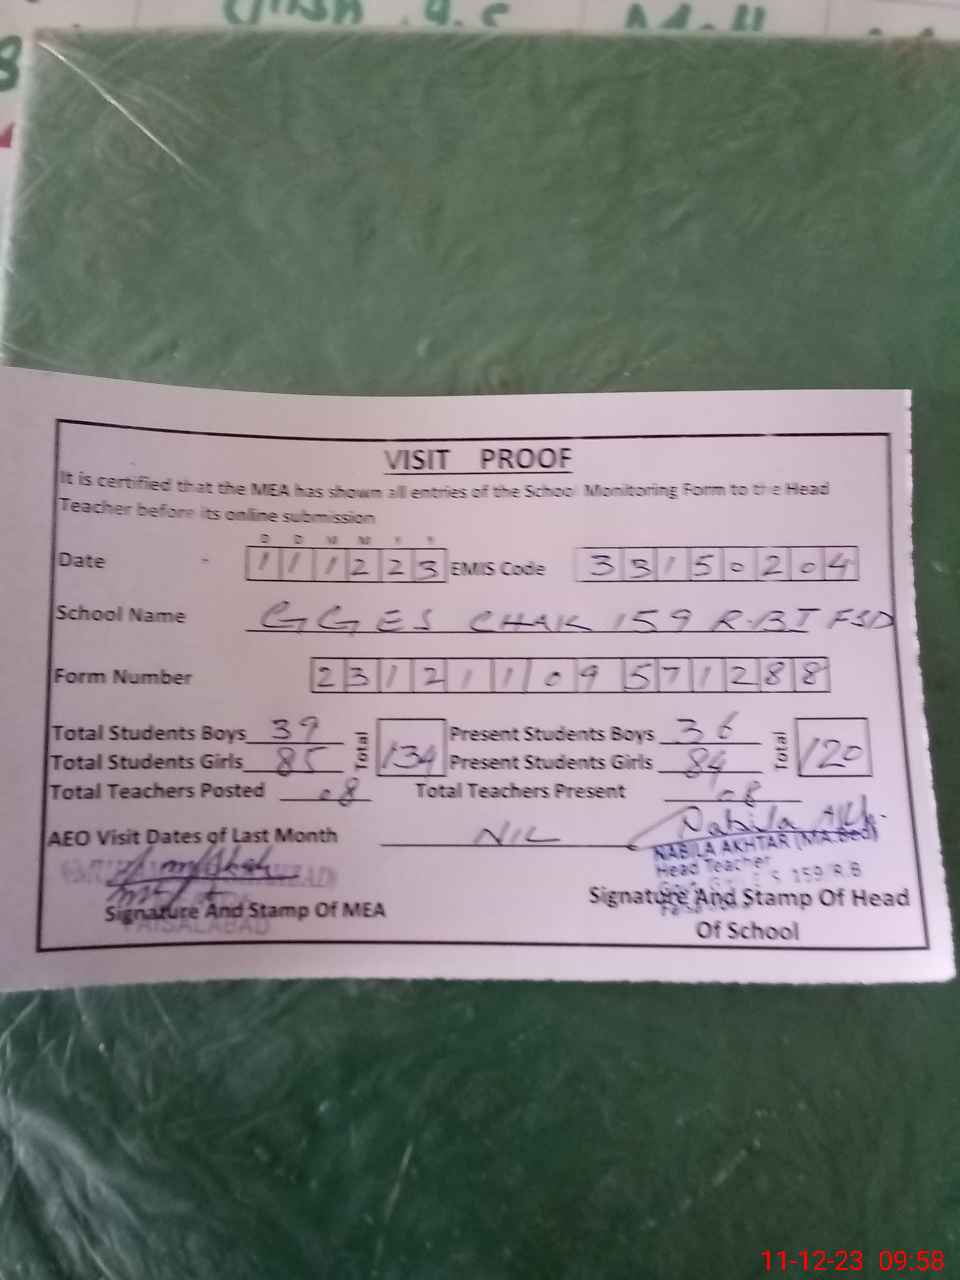 8
VISIT PROOF
It is certified that the MEA has shown all entries of the School Monitoring Form to the Head
Teacher before its online submission
D D M M Y Y
Date - 1 1 1 2 2 3 EMIS Code 3 3 1 5 0 2 0 4
School Name GGES CHAK 159 R.B I FSD
Form Number 2 3 1 2 1 1 0 9 5 7 1 2 8 8
Total Students Boys 39 Total 134 Present Students Boys 36 Total 120
Total Students Girls 85 Present Students Girls 84
Total Teachers Posted 08 Total Teachers Present 08
AEO Visit Dates of Last Month NIL
Nabila Akh.
NABILA AKHTAR (MA.Bed)
Head Teacher
S 159 R.B
Signature And Stamp Of MEA Signature And Stamp Of Head
FAISALABAD
Of School
11-12-23 09:58